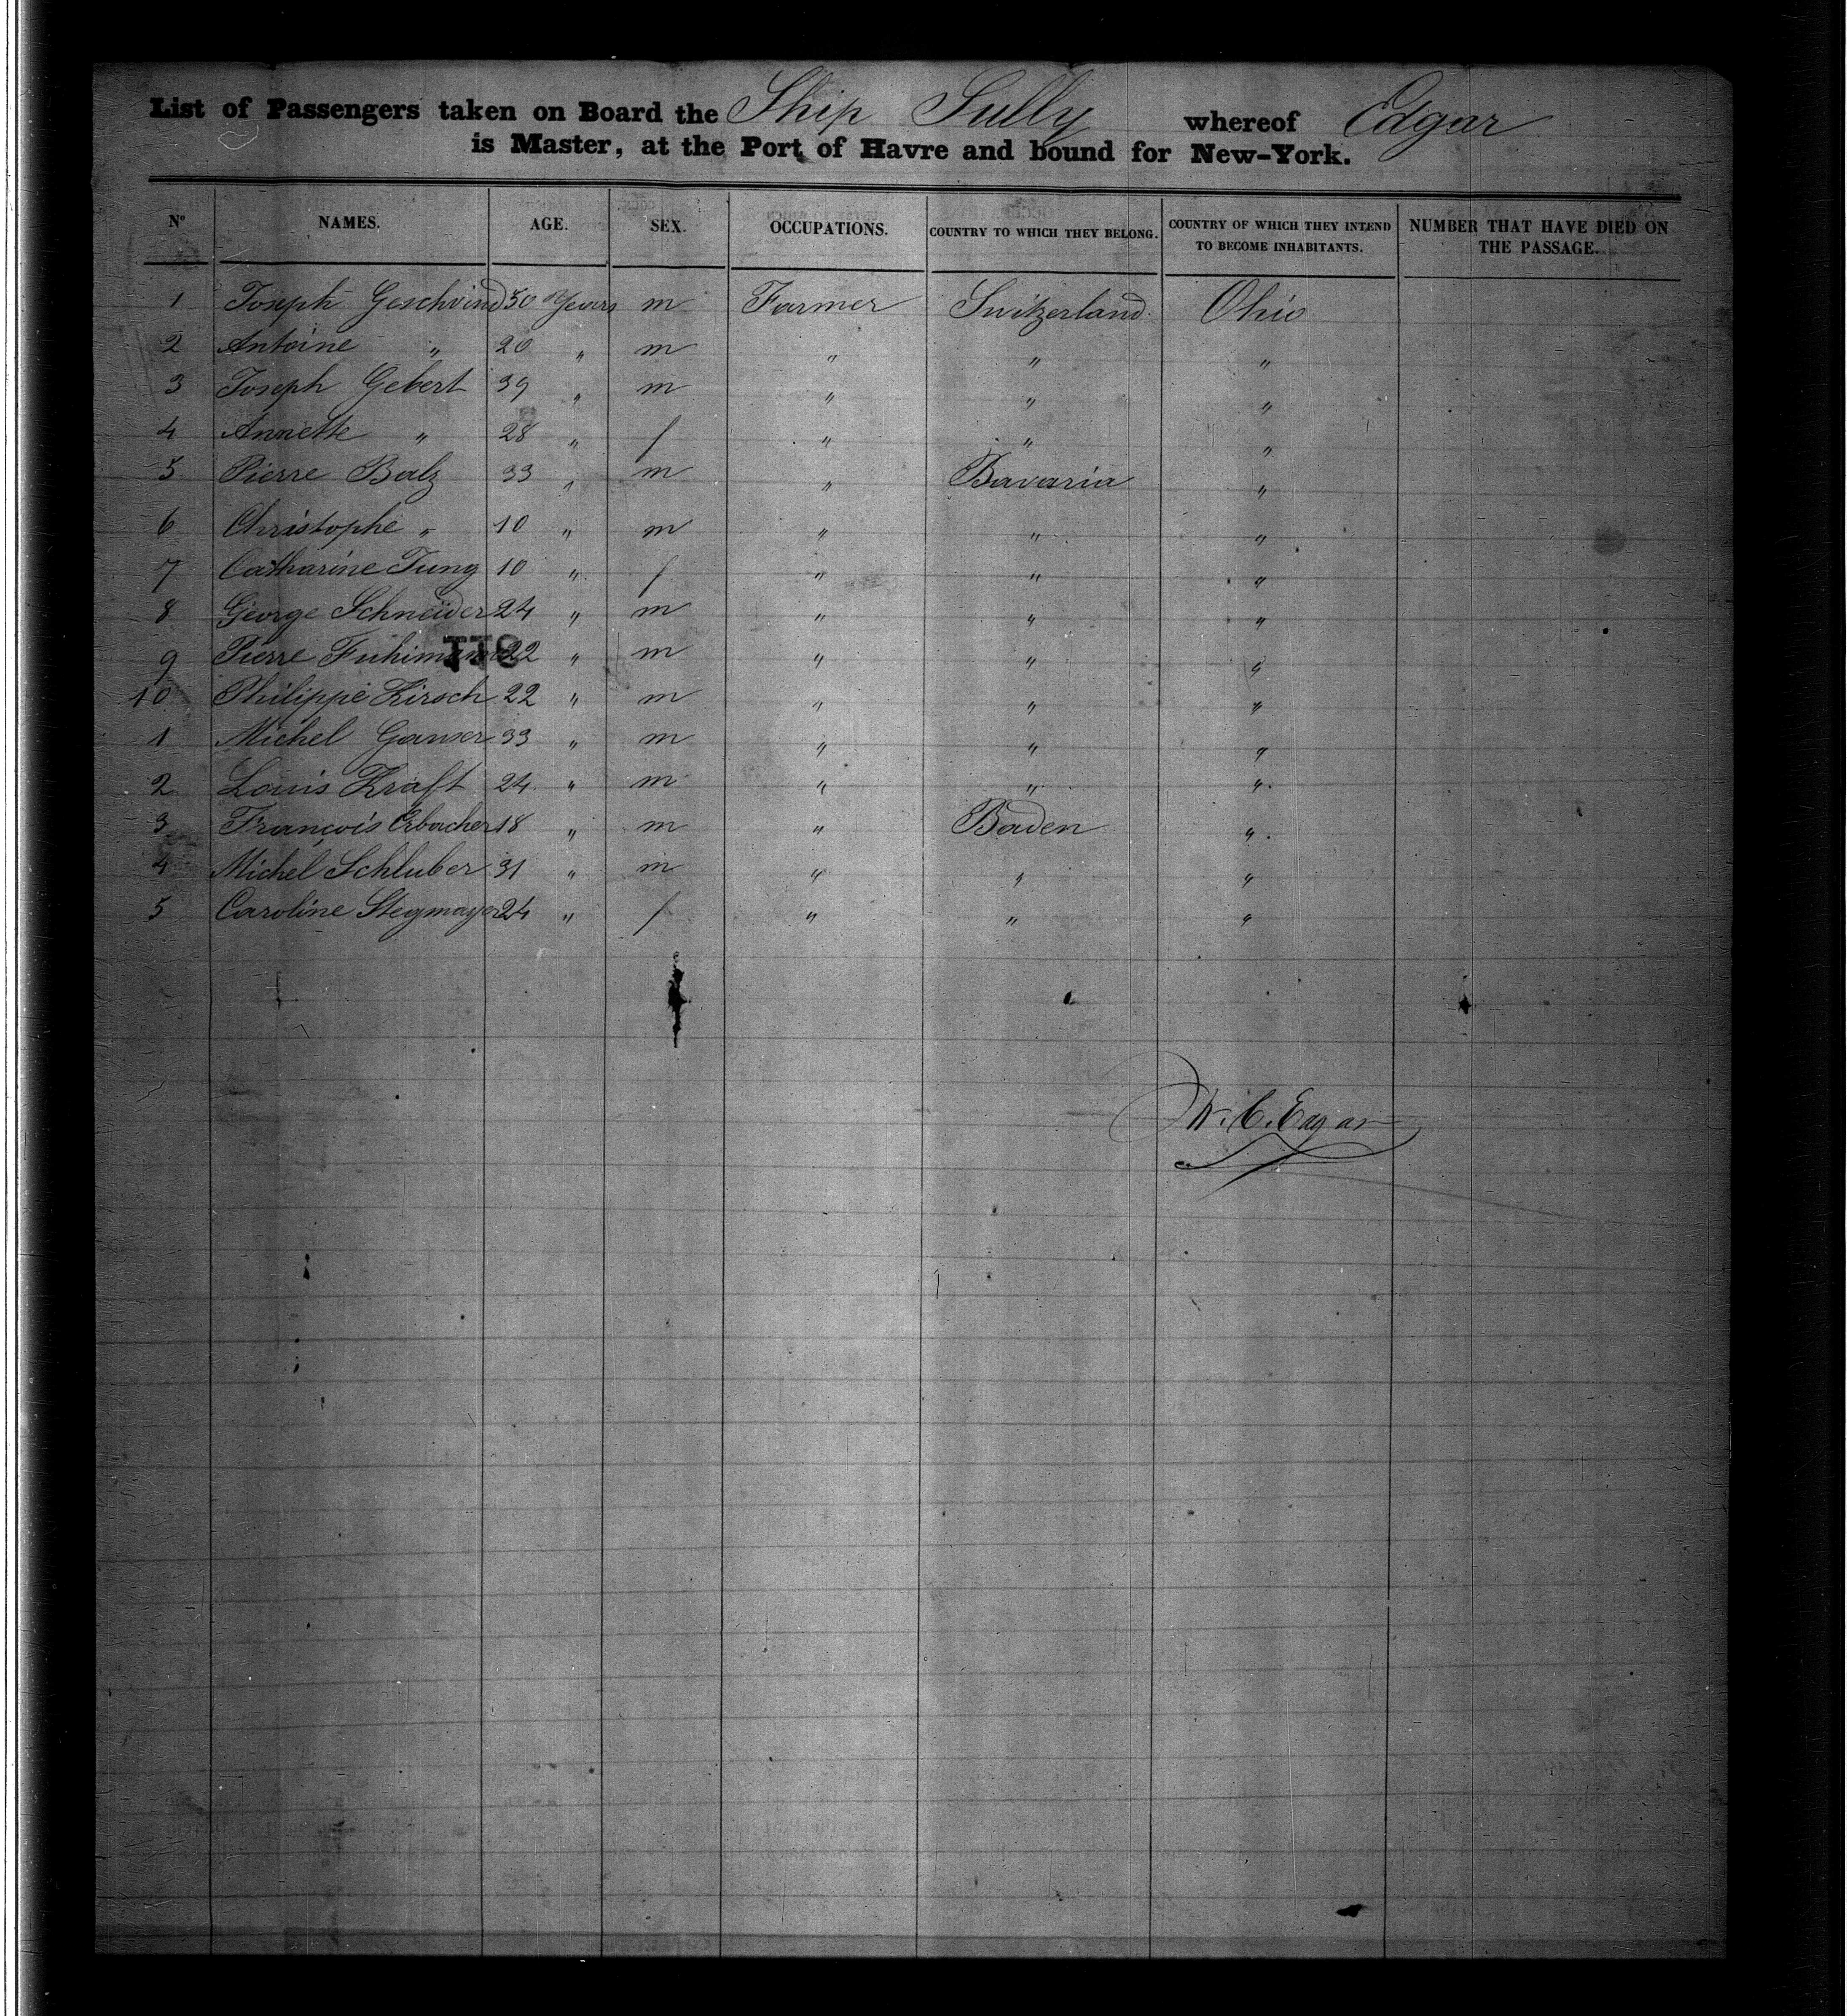 List of Passengers taken on Board the Ship Sully whereof Edgar
is Master, at the Port of Havre and bound for New-York.
Nº NAMES. AGE. SEX. OCCUPATIONS. COUNTRY TO WHICH THEY BELONG. COUNTRY OF WHICH THEY INTEND TO BECOME INHABITANTS. NUMBER THAT HAVE DIED ON THE PASSAGE.
1 Joseph Geschvind 50 Years m Farmer Switzerland. Ohio
2 Antoine " 20 " m " " "
3 Joseph Gebert 39 " m " " "
4 Annette " 28 " f " " "
5 Pierre Balz 33 " m " Bavaria "
6 Christophe " 10 " m " " "
7 Catharine Jung 10 " f " " "
8 George Schneider 24 " m " " "
9 Pierre 22 " m " " "
10 Philippe Hirsch 22 " m " " "
1 Michel Ganser 33 " m " " "
2 Louis Kraft 24 " m " " "
3 François Erbacher 18 " m " Baden "
4 Michel Schluber 31 " m " " "
5 Caroline Stegmayer 24 " f " " "
W. C. Edgar